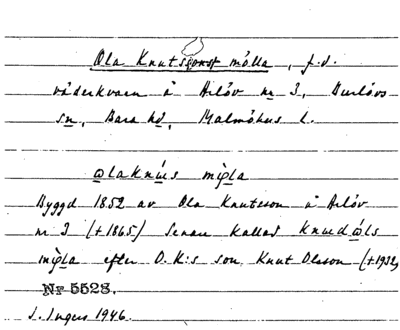 Ola Knutsons mölla, f.d.
väderkvarn å Arlöv nr 3, Burlövs
sn, Bara hd, Malmöhus l.
olaknus mǫla
Byggd 1852 av Ola Knutsson å Arlöv
nr 3 (+1865) Senare kallad
efter O.K:s son Knut Olsson (+1932)
Nr 5528.
J. Ingers 1946.